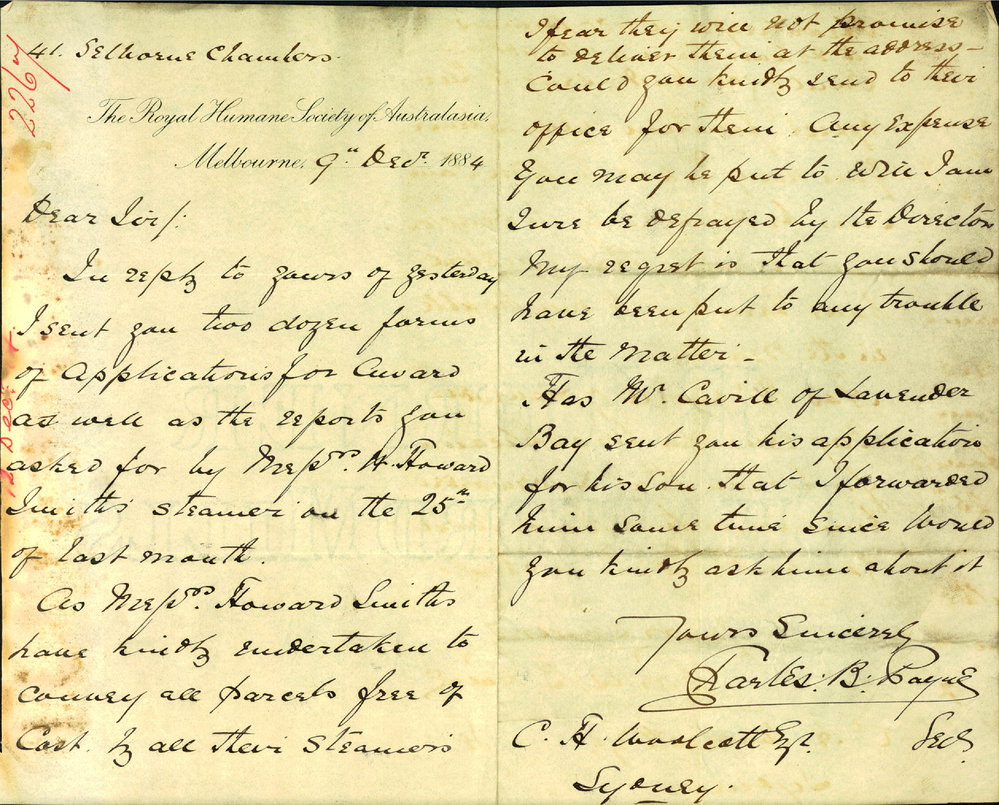 226/7
41. Selborne Chambers.
The Royal Humane Society of Australasia,
Melbourne, 9th Decr. 1884
Dear Sir/.
In reply to yours of yesterday
I sent you two dozen forms
of Applications for Award
as well as the reports you
asked for by Messrs. W. Howard
Smith's Steamer on the 25th
of last month.
As Messrs. Howard Smiths
have kindly undertaken to
convey all parcels free of
Cost by all their Steamers
I fear they will not promise
to deliver them at the address –
Could you kindly send to their
office for them. Any Expense
you may be put to will I am
sure be defrayed by the Directors
My regret is that you should
have been put to any trouble
in the Matter –
Has Mr. Cavill of Lavender
Bay sent you his application
for his son that I forwarded
him some time since would
you kindly ask him about it
Yours Sincerely
Charles. B. Payne
Secy.
C. H. Woolcott Esqr.
Sydney.